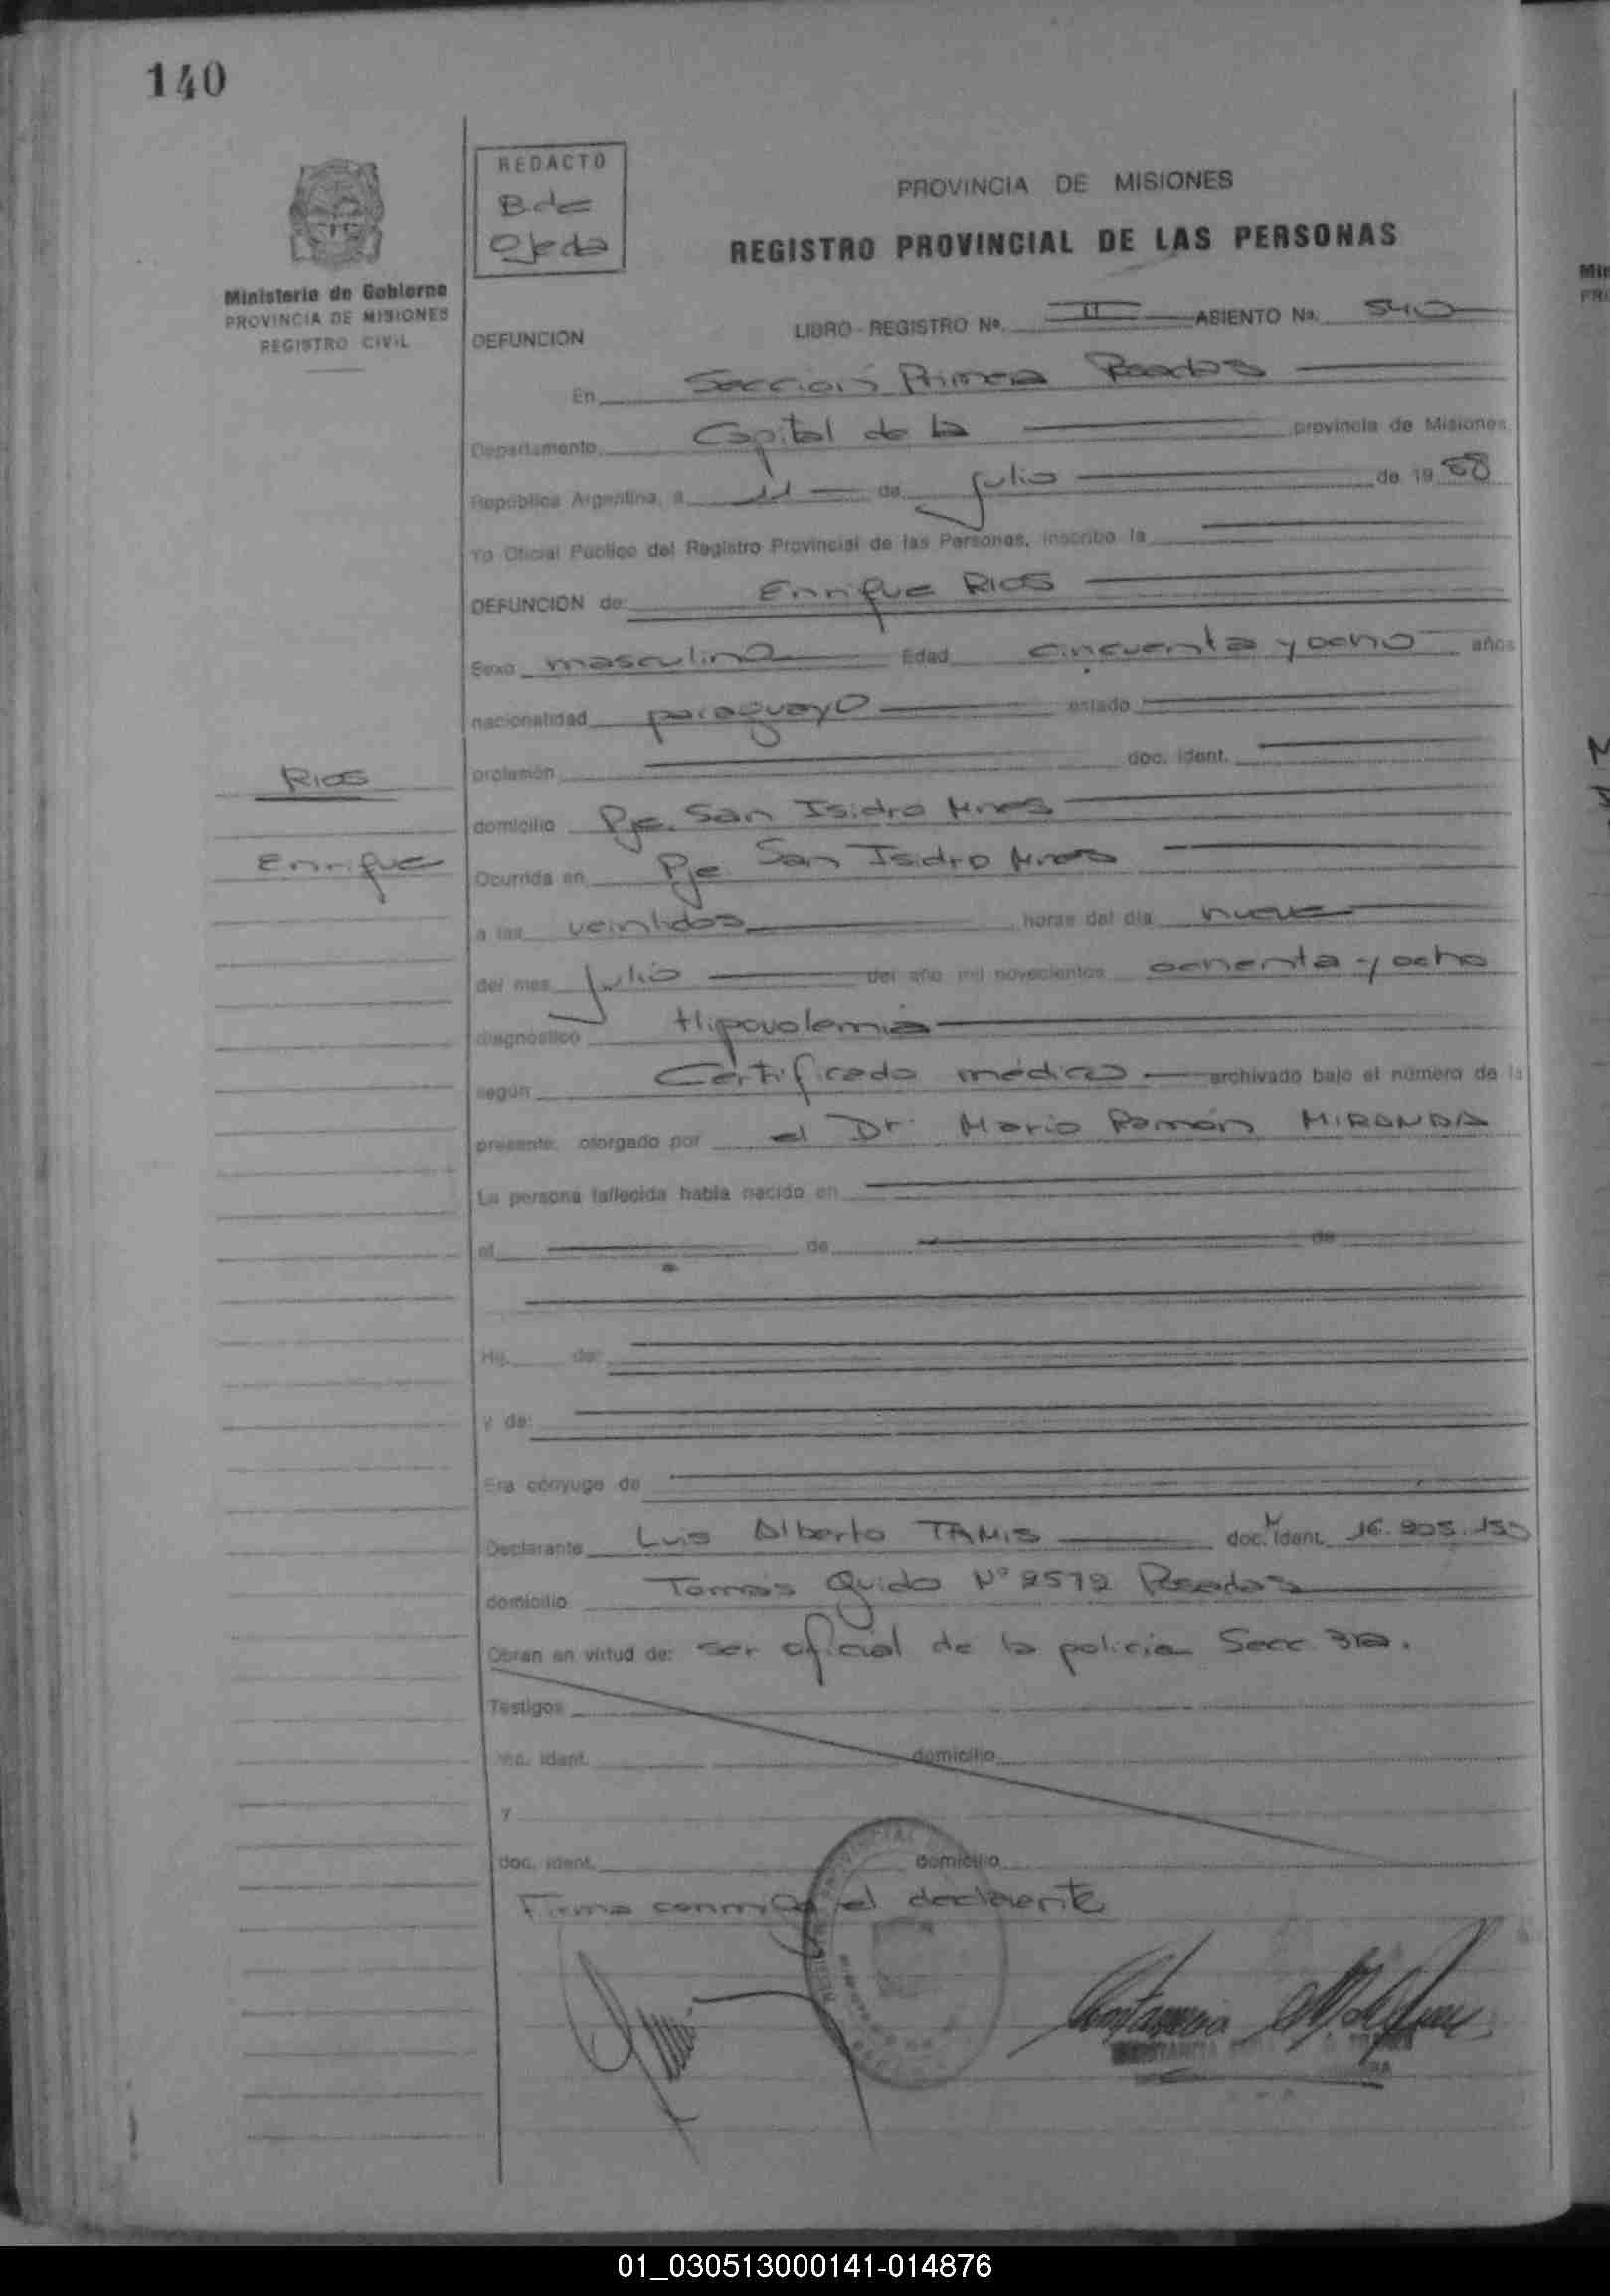 140
REDACTO
B. de
Ojeda
Ministerio de Gobierno
PROVINCIA DE MISIONES
REGISTRO CIVIL
PROVINCIA DE MISIONES
REGISTRO PROVINCIAL DE LAS PERSONAS
DEFUNCION
LIBRO - REGISTRO Nº. II ASIENTO No. 540
En Sección Primera Posadas
Departamento Capital de la provincia de Misiones
República Argentina, a 11 de julio de 1988
Yo Oficial Público del Registro Provincial de las Personas, inscribo la
DEFUNCION de: Enrique RIOS
Sexo masculino Edad cincuenta y ocho años
nacionalidad paraguayo estado
profesión doc. ident.
RIOS
Enrique
domicilio Pje. San Isidro Mnes
Ocurrida en Pje San Isidro Mnes
a las veintidos horas del día nueve
del mes julio del año mil novecientos ochenta y ocho
diagnóstico Hipovolemia
según Certificado médico archivado bajo el número de la
presente, otorgado por el Dr. Mario Ramón MIRANDA
La persona fallecida había nacido en
el de de
Hij. de:
y de:
Era cónyuge de
Declarante Luis Alberto TAMIS doc. ident. 16.905.15
domicilio Tomás Guido Nº 2572 Posadas
Obran en virtud de: ser oficial de la policia Secc 3ra.
Testigos
doc. ident. domicilio
y
doc. ident. domicilio
Firma conmigo el declarante
01_030513000141-014876